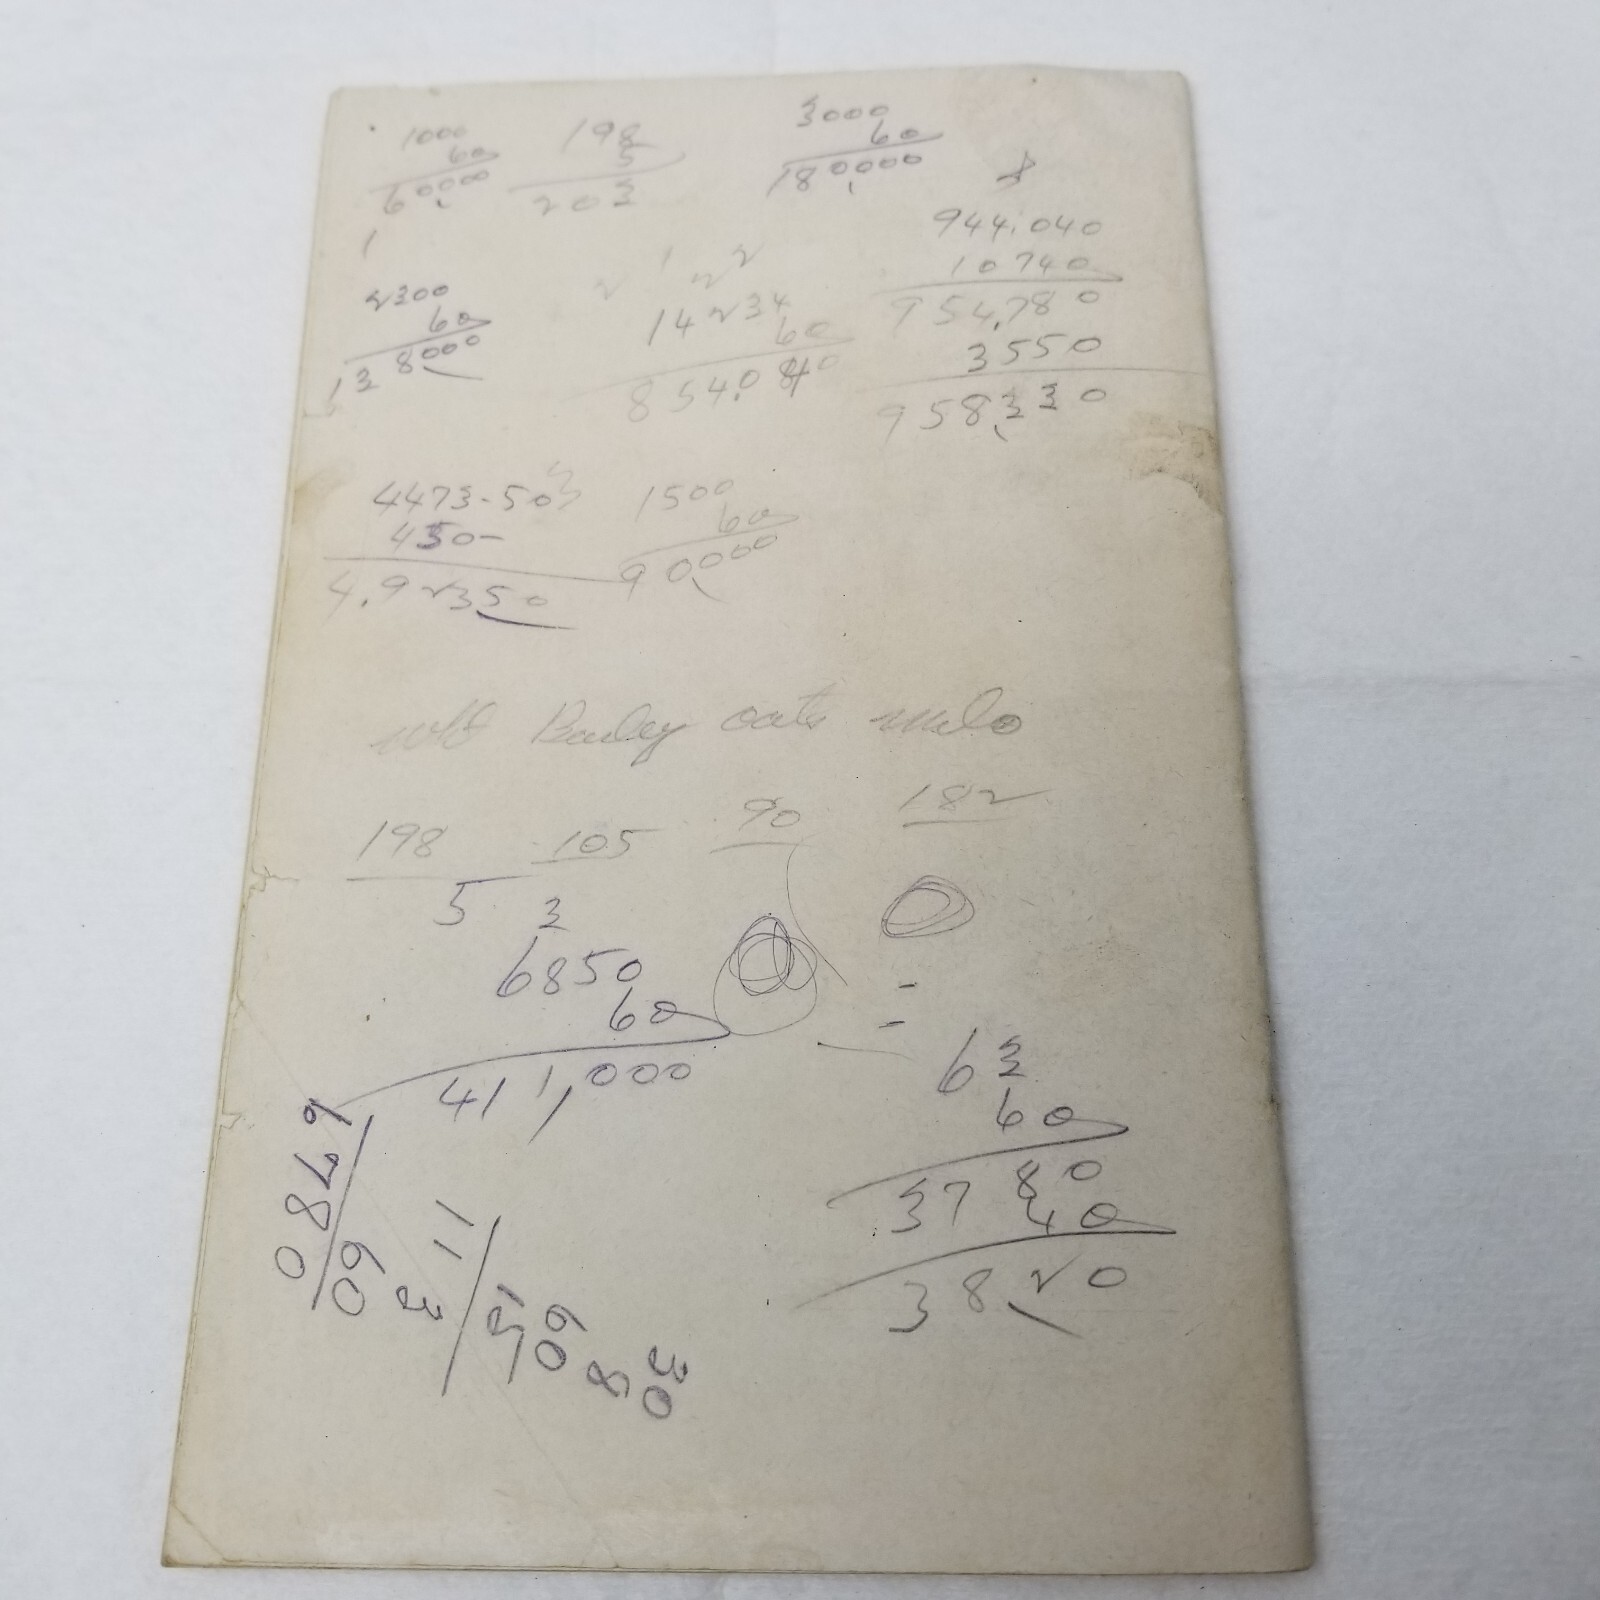 1000
60
60,000
198
5
203
3000
60
180,000
1
944,040
10740
954,780
3550
958,330
2300
60
138000
1 2 2
14234
60
854,040
4473-50
450-
4,92350
1500
60
90,000
Barley oats milo
198 105 90 182
5
3
6850
60
411,000
63
60
3780
40
3820
6780
60
3
11
60
8
30